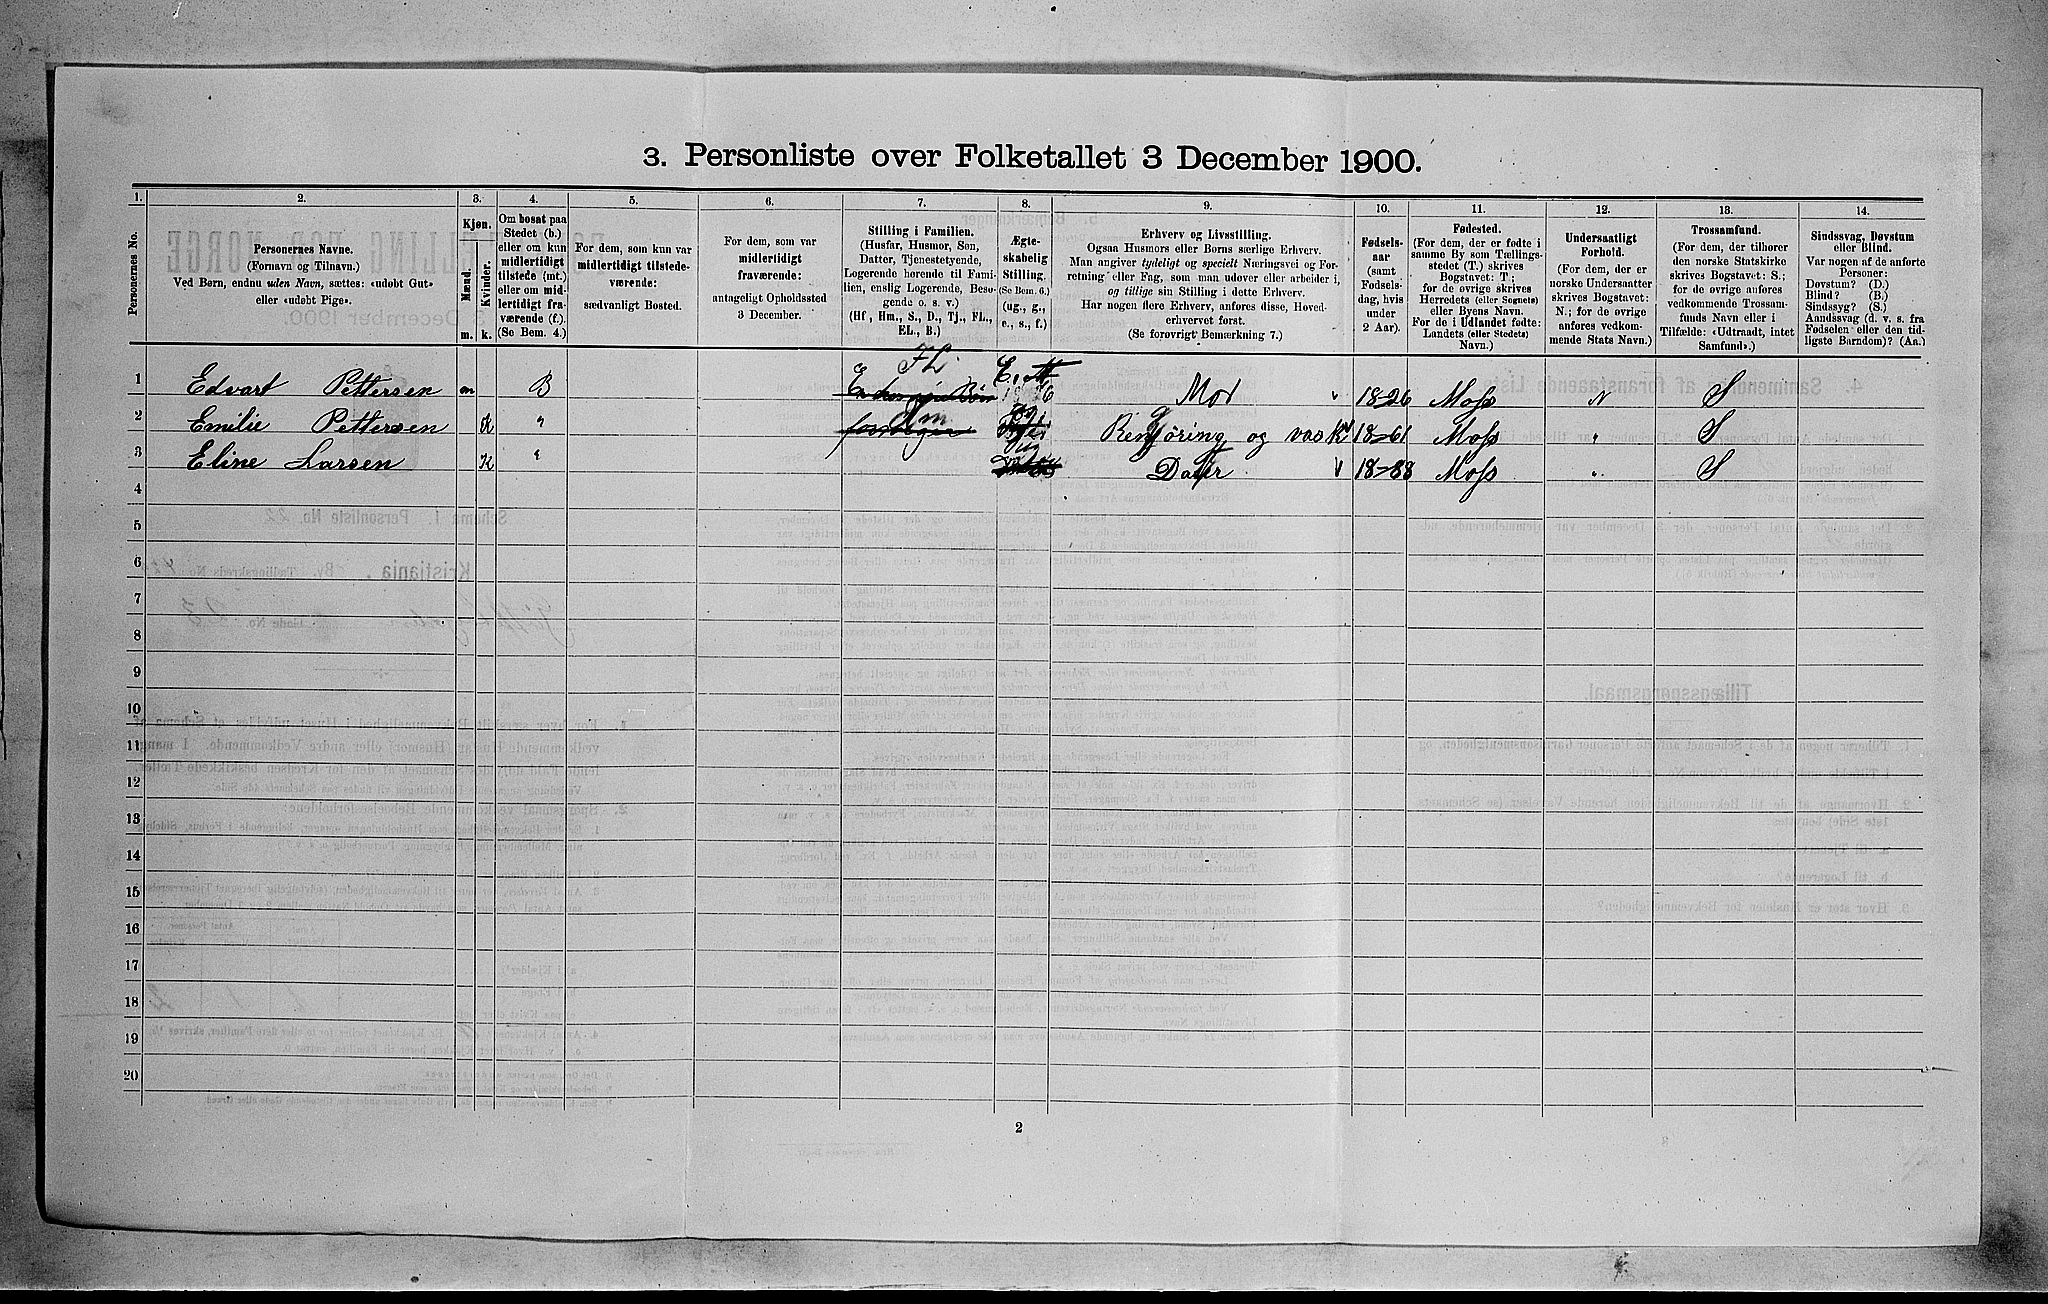 3. Personliste over Folketallet 3 December 1900.
1. 2. 3. 4. 5. 6. 7. 8. 9. 10. 11. 12. 13. 14.
Personernes No.
Personernes Navne.
(Fornavn og Tilnavn.)
Ved Børn, endnu uden Navn, sættes: «udøbt Gut»
eller «udøbt Pige».
Kjøn.
Mænd.
Kvinder.
m. k.
Om bosat paa
Stedet (b.)
eller om kun
midlertidigt
tilstede (mt.)
eller om mid-
lertidigt fra-
værende (f.)
(Se Bem. 4.)
For dem, som kun var
midlertidigt tilstede-
værende:
sædvanligt Bosted.
For dem, som var
midlertidigt
fraværende:
antageligt Opholdssted
3 December.
Stilling i Familien.
(Husfar, Husmor, Søn,
Datter, Tjenestetyende,
Logerende hørende til Fami-
lien, enslig Logerende, Besø-
gende o. s. v.)
(Hf, Hm., S., D., Tj., FL.,
EL., B.)
Ægte-
skabelig
Stilling.
(Se Bem. 6.)
(ug., g.,
e., s., f.)
Erhverv og Livsstilling.
Ogsaa Husmors eller Børns særlige Erhverv.
Man angiver tydeligt og specielt Næringsvei og For-
retning eller Fag, som man udøver eller arbeider i,
og tillige sin Stilling i dette Erhverv.
Har nogen flere Erhverv, anføres disse, Hoved-
erhvervet først.
(Se forøvrigt Bemærkning 7.)
Fødsels-
aar
(samt
Fødsels-
dag, hvis
under
2 Aar).
Fødested.
(For dem, der er fødte i
samme By som Tællings-
stedet (T.) skrives
Bogstavet: T;
for de øvrige skrives
Herredets (eller Sognets)
eller Byens Navn.
For de i Udlandet fødte:
Landets (eller Stedets)
Navn.)
Undersaatligt
Forhold.
(For dem, der er
norske Undersaatter
skrives Bogstavet:
N.; for de øvrige
anføres vedkom-
mende Stats Navn.)
Trossamfund.
(For dem, der tilhører
den norske Statskirke
skrives Bogstavet: S.;
for de øvrige anføres
vedkommende Trossam-
funds Navn eller i
Tilfælde: «Udtraadt, intet
Samfund».)
Sindssvag, Døvstum
eller Blind.
Var nogen af de anførte
Personer:
Døvstum? (D.)
Blind? (B.)
Sindssyg? (S.)
Aandssvag (d. v. s. fra
Fødselen eller den tid-
ligste Barndom)? (Aa.)
1 Edvart Pettersen m B FL E. 1826 Moss N S
2 Emilie Pettersen K " Hm Rengjøring og vask 1861 Moss " S
3 Eline Larsen K " 1888 Moss " S
4
5
6
7
8
9
10
11
12
13
14
15
16
17
18
19
20
2